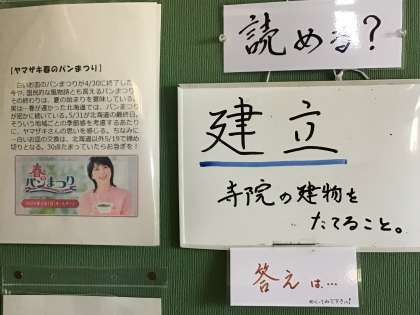 【ヤマザキ春のパンまつり】
白いお皿のパンまつりが4/30に終了した
今や、国民的な風物詩とも言えるパンまつり。
その終わりは、夏の始まりを意味している。
実は…春が遅かった北海道では、パンまつり
が密かに続いている。5/31が北海道の最終日。
そういう地域ごとの季節感を考慮するあたり
に、ヤマザキさんの思いを感じる。ちなみに
…白いお皿の交換は、北海道以外5/19で締め
切りとなる。30点たまっていたらお急ぎを!
春の
パンまつり
読める?
建立
寺院の建物を
たてること。
答えは…
めくってみて下さい!